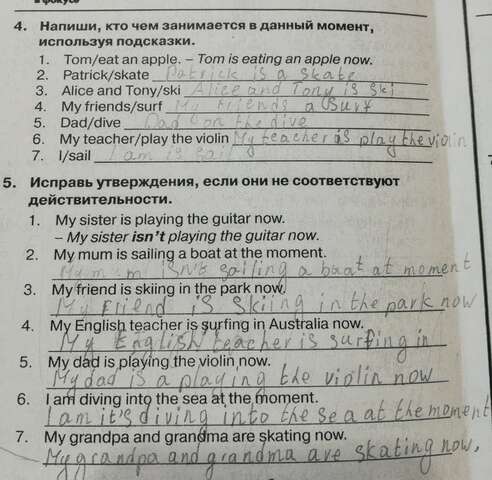 в фокусе
4. Напиши, кто чем занимается в данный момент,
используя подсказки.
1. Tom/eat an apple. – Tom is eating an apple now.
2. Patrick/skate Patrick is a skate
3. Alice and Tony/ski Alice and Tony is ski
4. My friends/surf My friends a surf
5. Dad/dive Dad on the dive
6. My teacher/play the violin My teacher is play the violin
7. I/sail I am is sail
5. Исправь утверждения, если они не соответствуют
действительности.
1. My sister is playing the guitar now.
– My sister isn't playing the guitar now.
2. My mum is sailing a boat at the moment.
My mum isn't sailing a boat at moment
3. My friend is skiing in the park now.
My friend is skiing in the park now
4. My English teacher is surfing in Australia now.
My English teacher is surfing in
5. My dad is playing the violin now.
My dad is a playing the violin now
6. I am diving into the sea at the moment.
I am it's diving into the sea at the moment
7. My grandpa and grandma are skating now.
My grandpa and grandma are skating now,